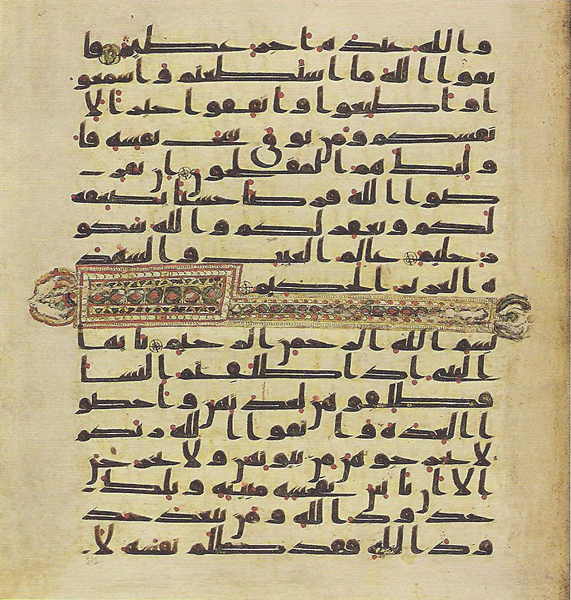 والله عنده أجر عظيم فا
تقوا الله ما استطعتم واسمعو
ا وأطيعوا وأنفقوا خيرا لأ
نفسكم ومن يوق شح نفسه فأ
ولئك هم المفلحون إن تقر
ضوا الله قرضا حسنا يضعفه
لكم ويغفر لكم والله شكو
ر حليم عالم الغيب والشهد
ة العزيز الحكيم
بسم الله الرحمن الرحيم يأيها
النبي إذا طلقتم النسا
فطلقوهن لعدتهن وأحصو
ا العدة واتقوا الله ربكم
لا تخرجوهن من بيوتهن ولا يخرجن
إلا أن يأتين بفحشة مبينة وتلك
حدود الله ومن يتعد حد
ود الله فقد ظلم نفسه لا